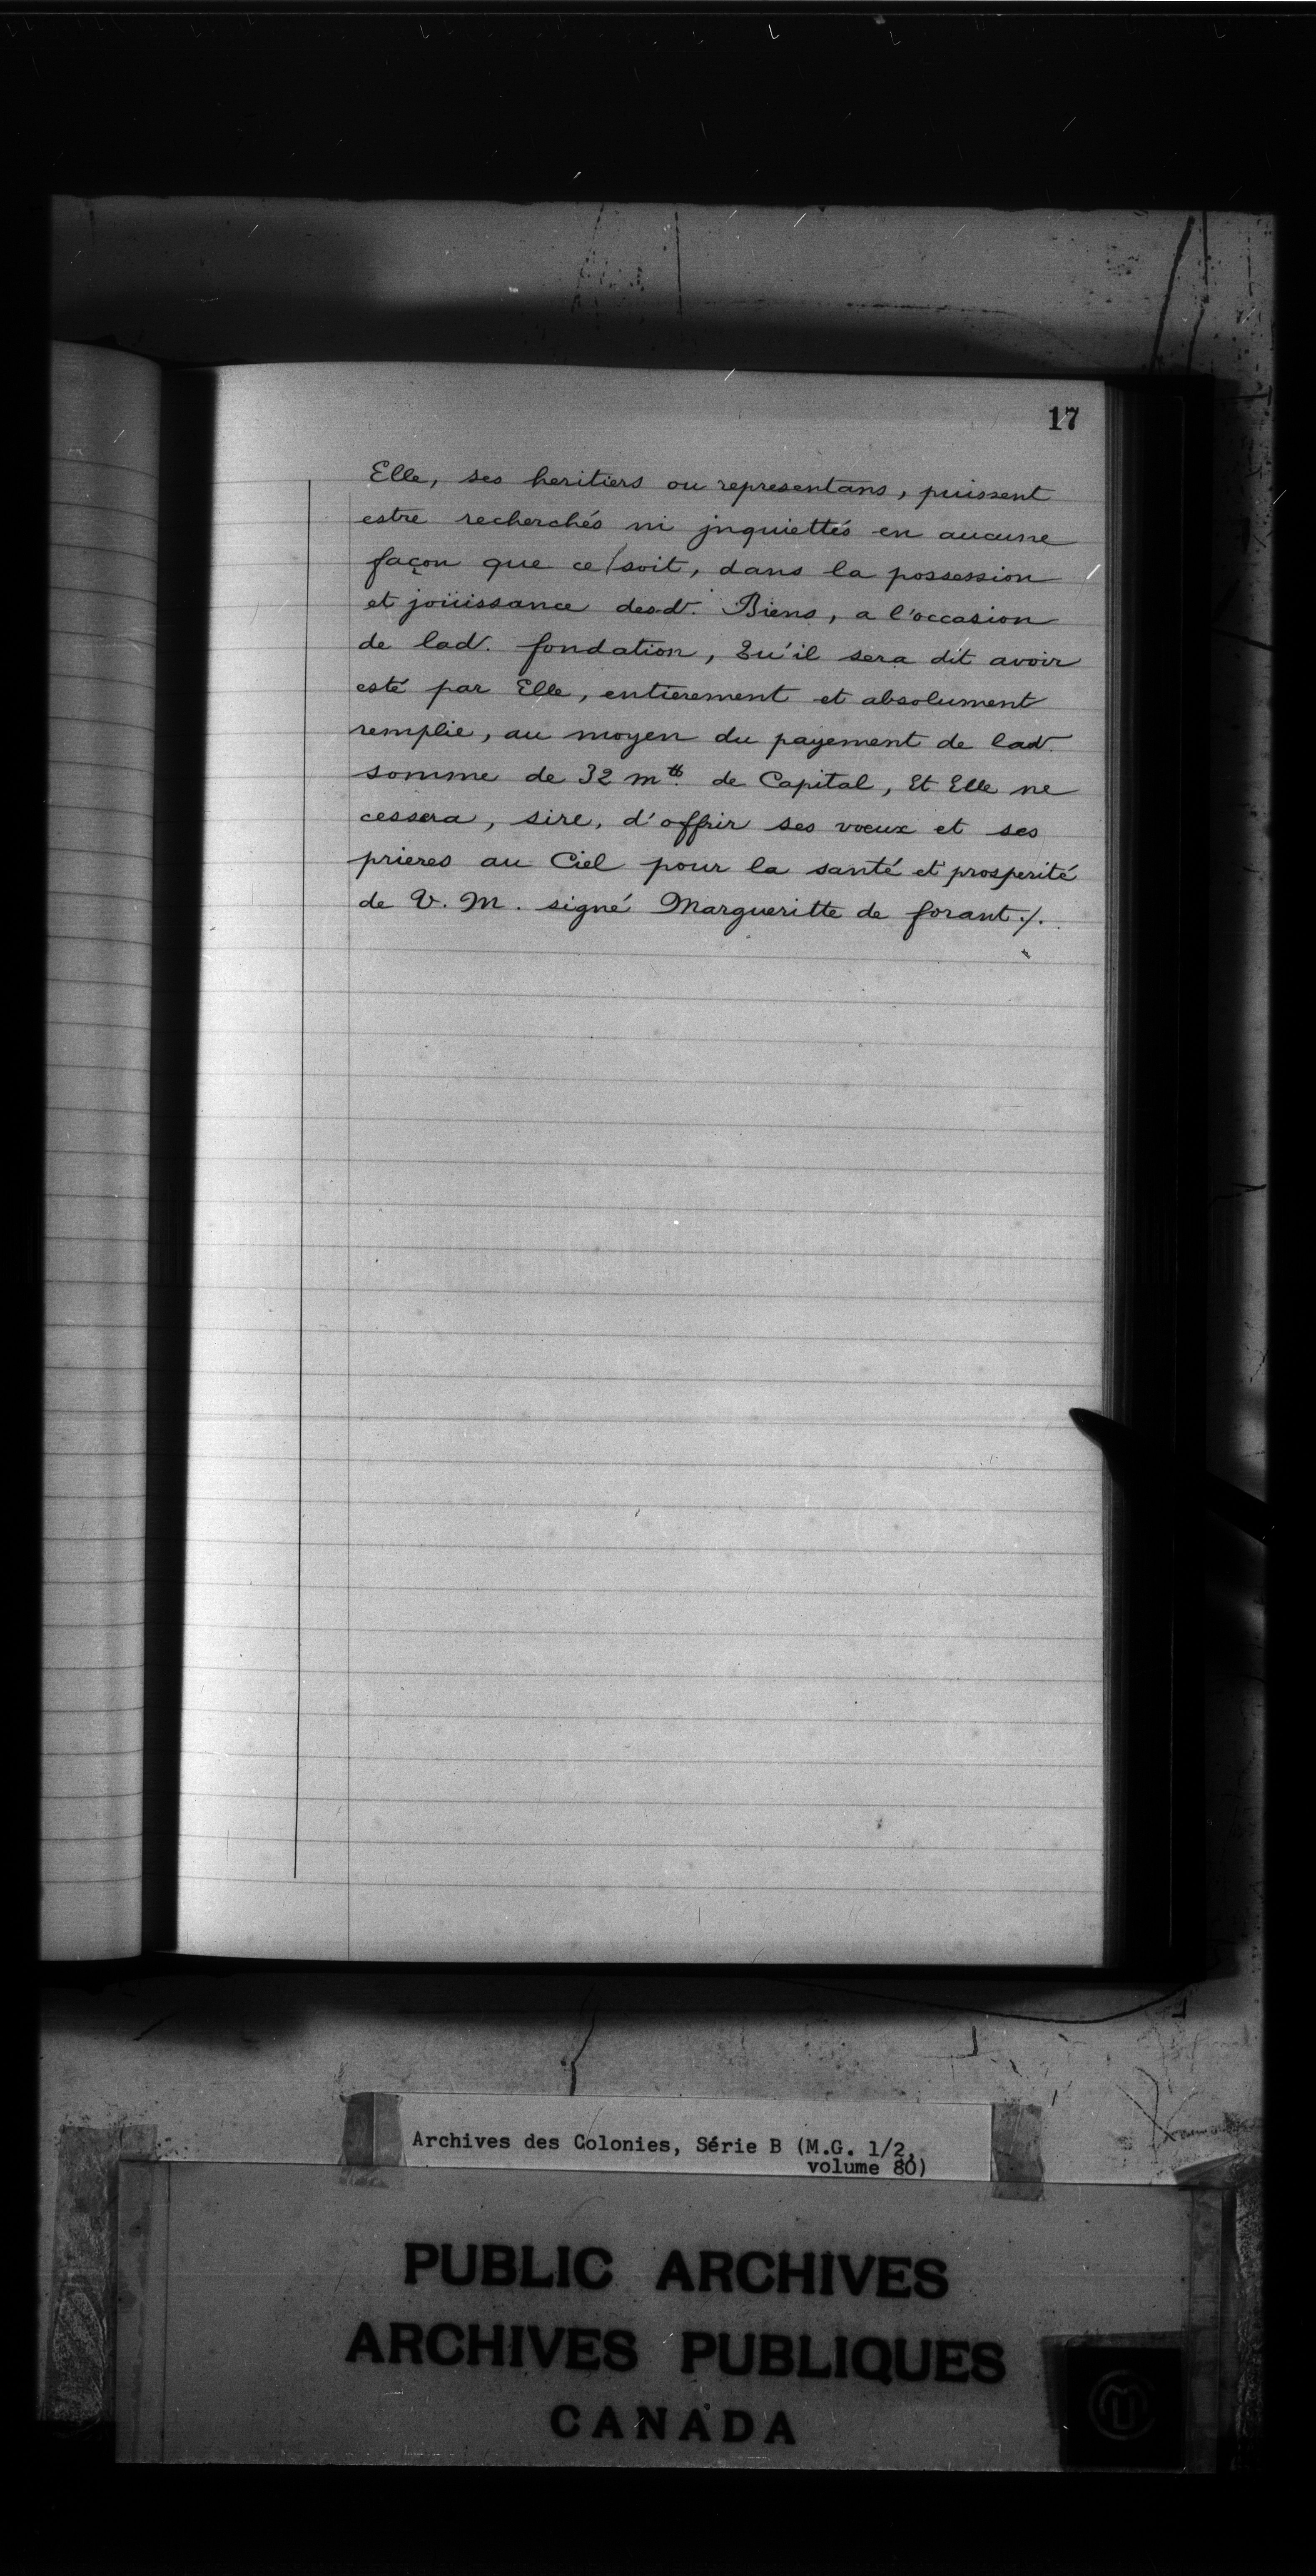 17
Elle, ses heritiers ou representans, puissent
estre recherchés ni jnquiettés en aucune
façon que ce soit, dans la possession
et joüissance desd. Biens, a l'occasion
de lad. fondation, Qu'il sera dit avoir
esté par Elle, entierement et absolument
remplie, au moyen du payement de lad.
somme de 32 m ₶ de Capital, Et Elle ne
cessera, sire, d'offrir ses vœux et ses
prieres au Ciel pour la santé et prosperité
de V. M. signé Margueritte de forant ./.
Archives des Colonies, Série B (M.G. 1/2,
volume 80)
PUBLIC ARCHIVES
ARCHIVES PUBLIQUES
CANADA